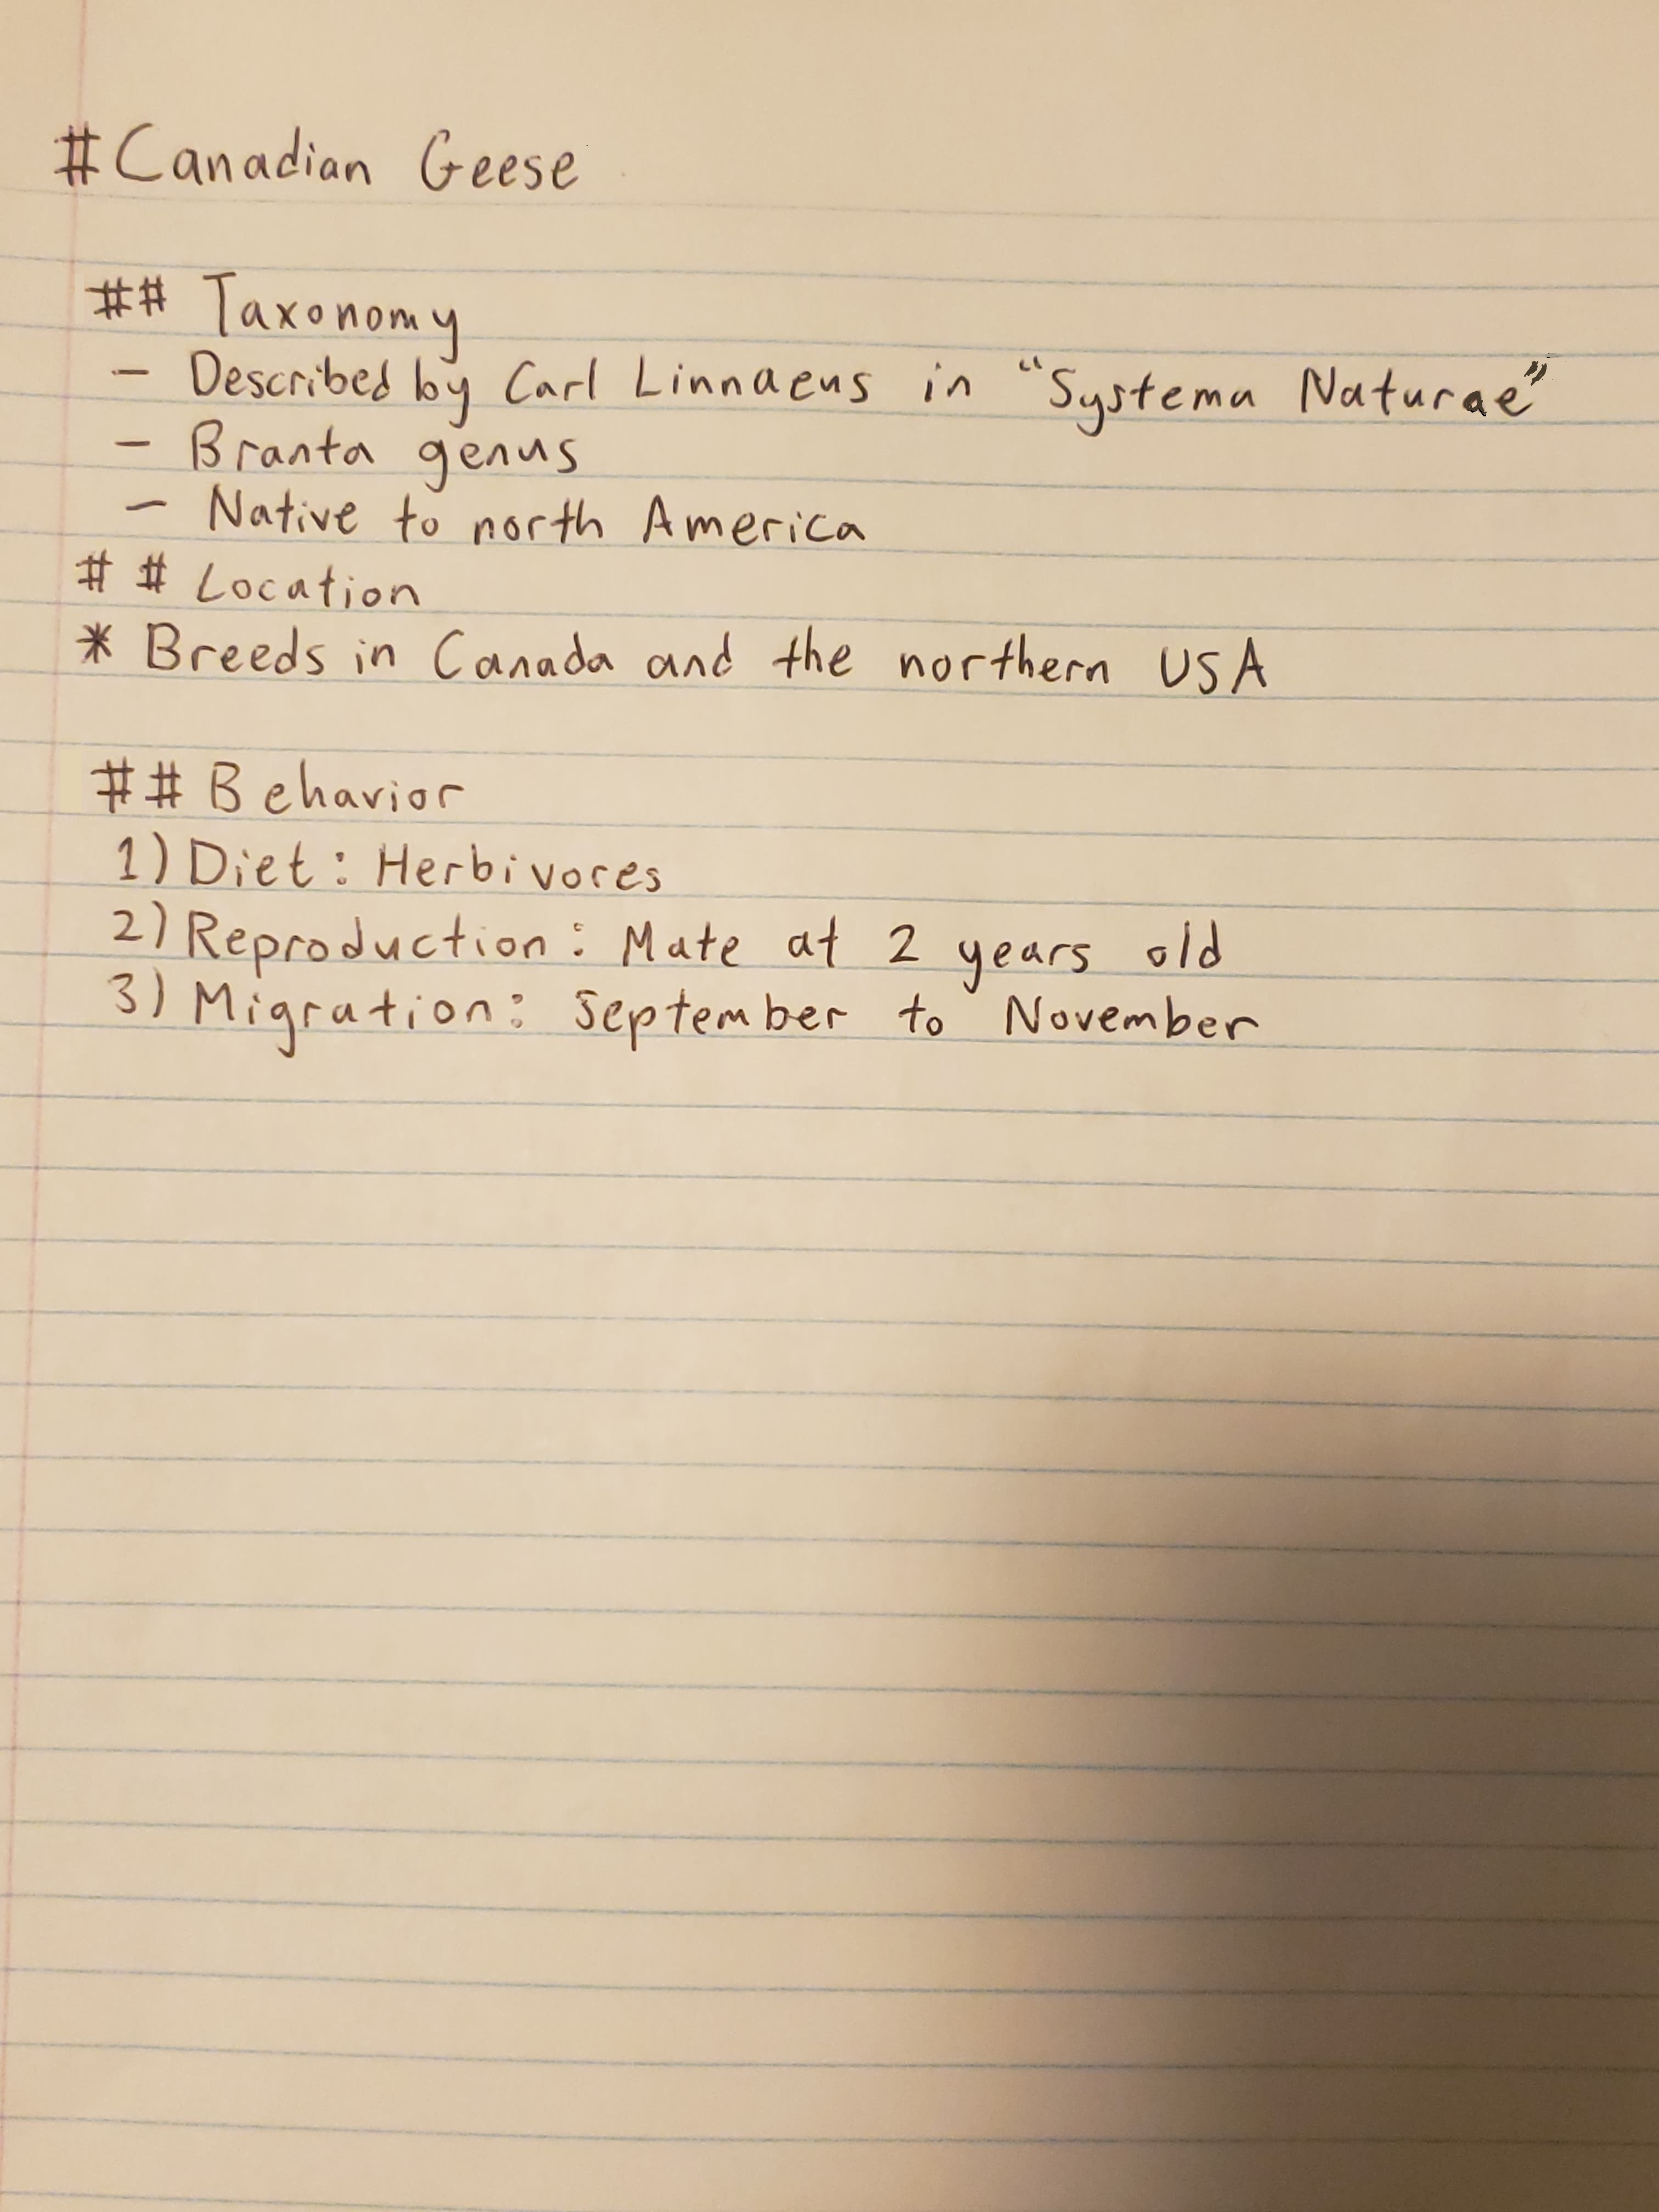 #Canadian Geese
## Taxonomy
- Described by Carl Linnaeus in “Systema Naturae”
- Branta genus
- Native to north America
# # Location
* Breeds in Canada and the northern USA
## Behavior
1) Diet: Herbivores
2) Reproduction: Mate at 2 years old
3) Migration: September to November